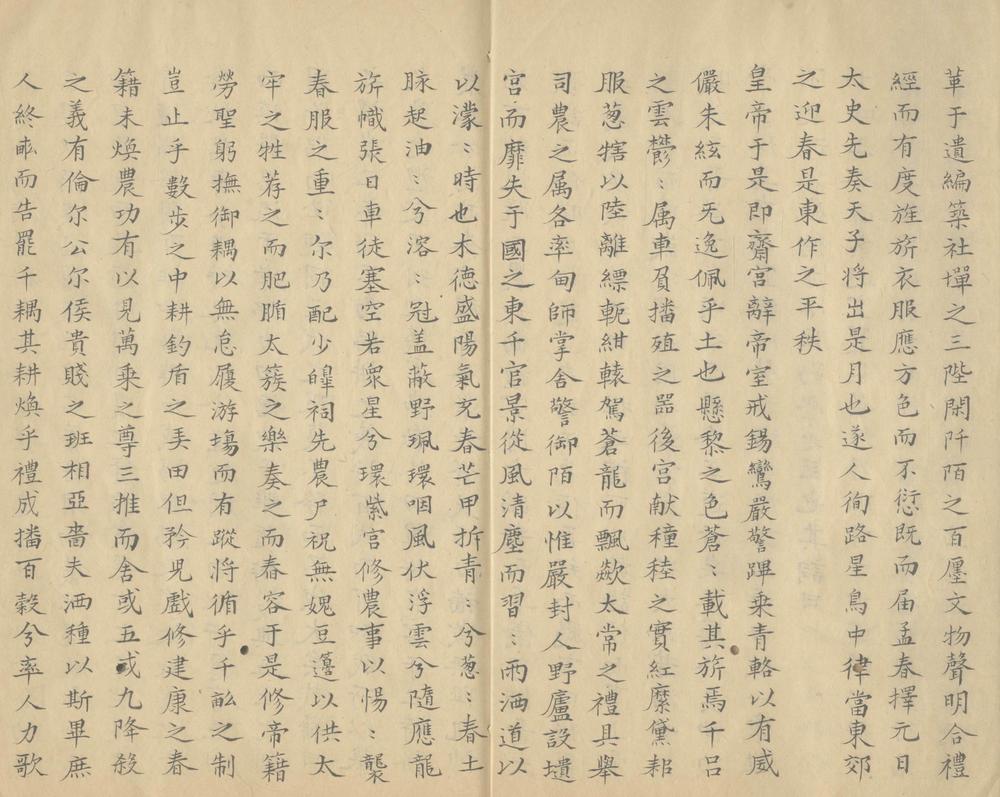 革于遺編築社壇之三陛閑阡陌之百廛文物聲明合禮
經而有度旌旂衣服應方色而不愆既而届孟春擇元日
太史先奏天子將出是月也遂人徇路星鳥中律當東郊
之迎春是東作之平秩
皇帝于是即齋宮辭帝室戒錫鸞嚴警蹕乗青輅以有威
儼朱絃而旡逸佩乎土也懸黎之色蒼〻載其旂焉千吕
之雲欝〻属車員播殖之噐後宮献種稑之實紅縻黛耜
服葱犗以陸離縹軛紺轅駕蒼龍而飄歘太常之禮具舉
司農之属各率甸師掌舍警御陌以惟嚴封人野廬設壝
宮而靡失于國之東千官景從風清塵而習〻雨洒道以
以濛〻時也木德盛陽氣充春芒甲拆青〻兮葱〻春土
脉起油〻兮溶〻冠盖蔽野珮環咽風伏浮雲兮隨應龍
旂幟張日車徒塞空若衆星兮環紫宮修農事以惕〻襲
春服之重〻尓乃配少皥祠先農尸祝無媿豆籩以供太
牢之牲荐之而肥腯太簇之樂奏之而舂容于是修帝籍
勞聖躬撫御耦以無怠履游塲而有蹤將循乎千畝之制
豈止乎數步之中耕鈎盾之弄田但矜児戲修建康之春
籍未煥農功有以見萬乘之尊三推而舍或五或九降殺
之義有倫尓公尓侯貴賤之班相亞嗇夫洒種以斯畢庶
人終畝而告罷千耦其耕煥乎禮成播百穀兮率人力歌